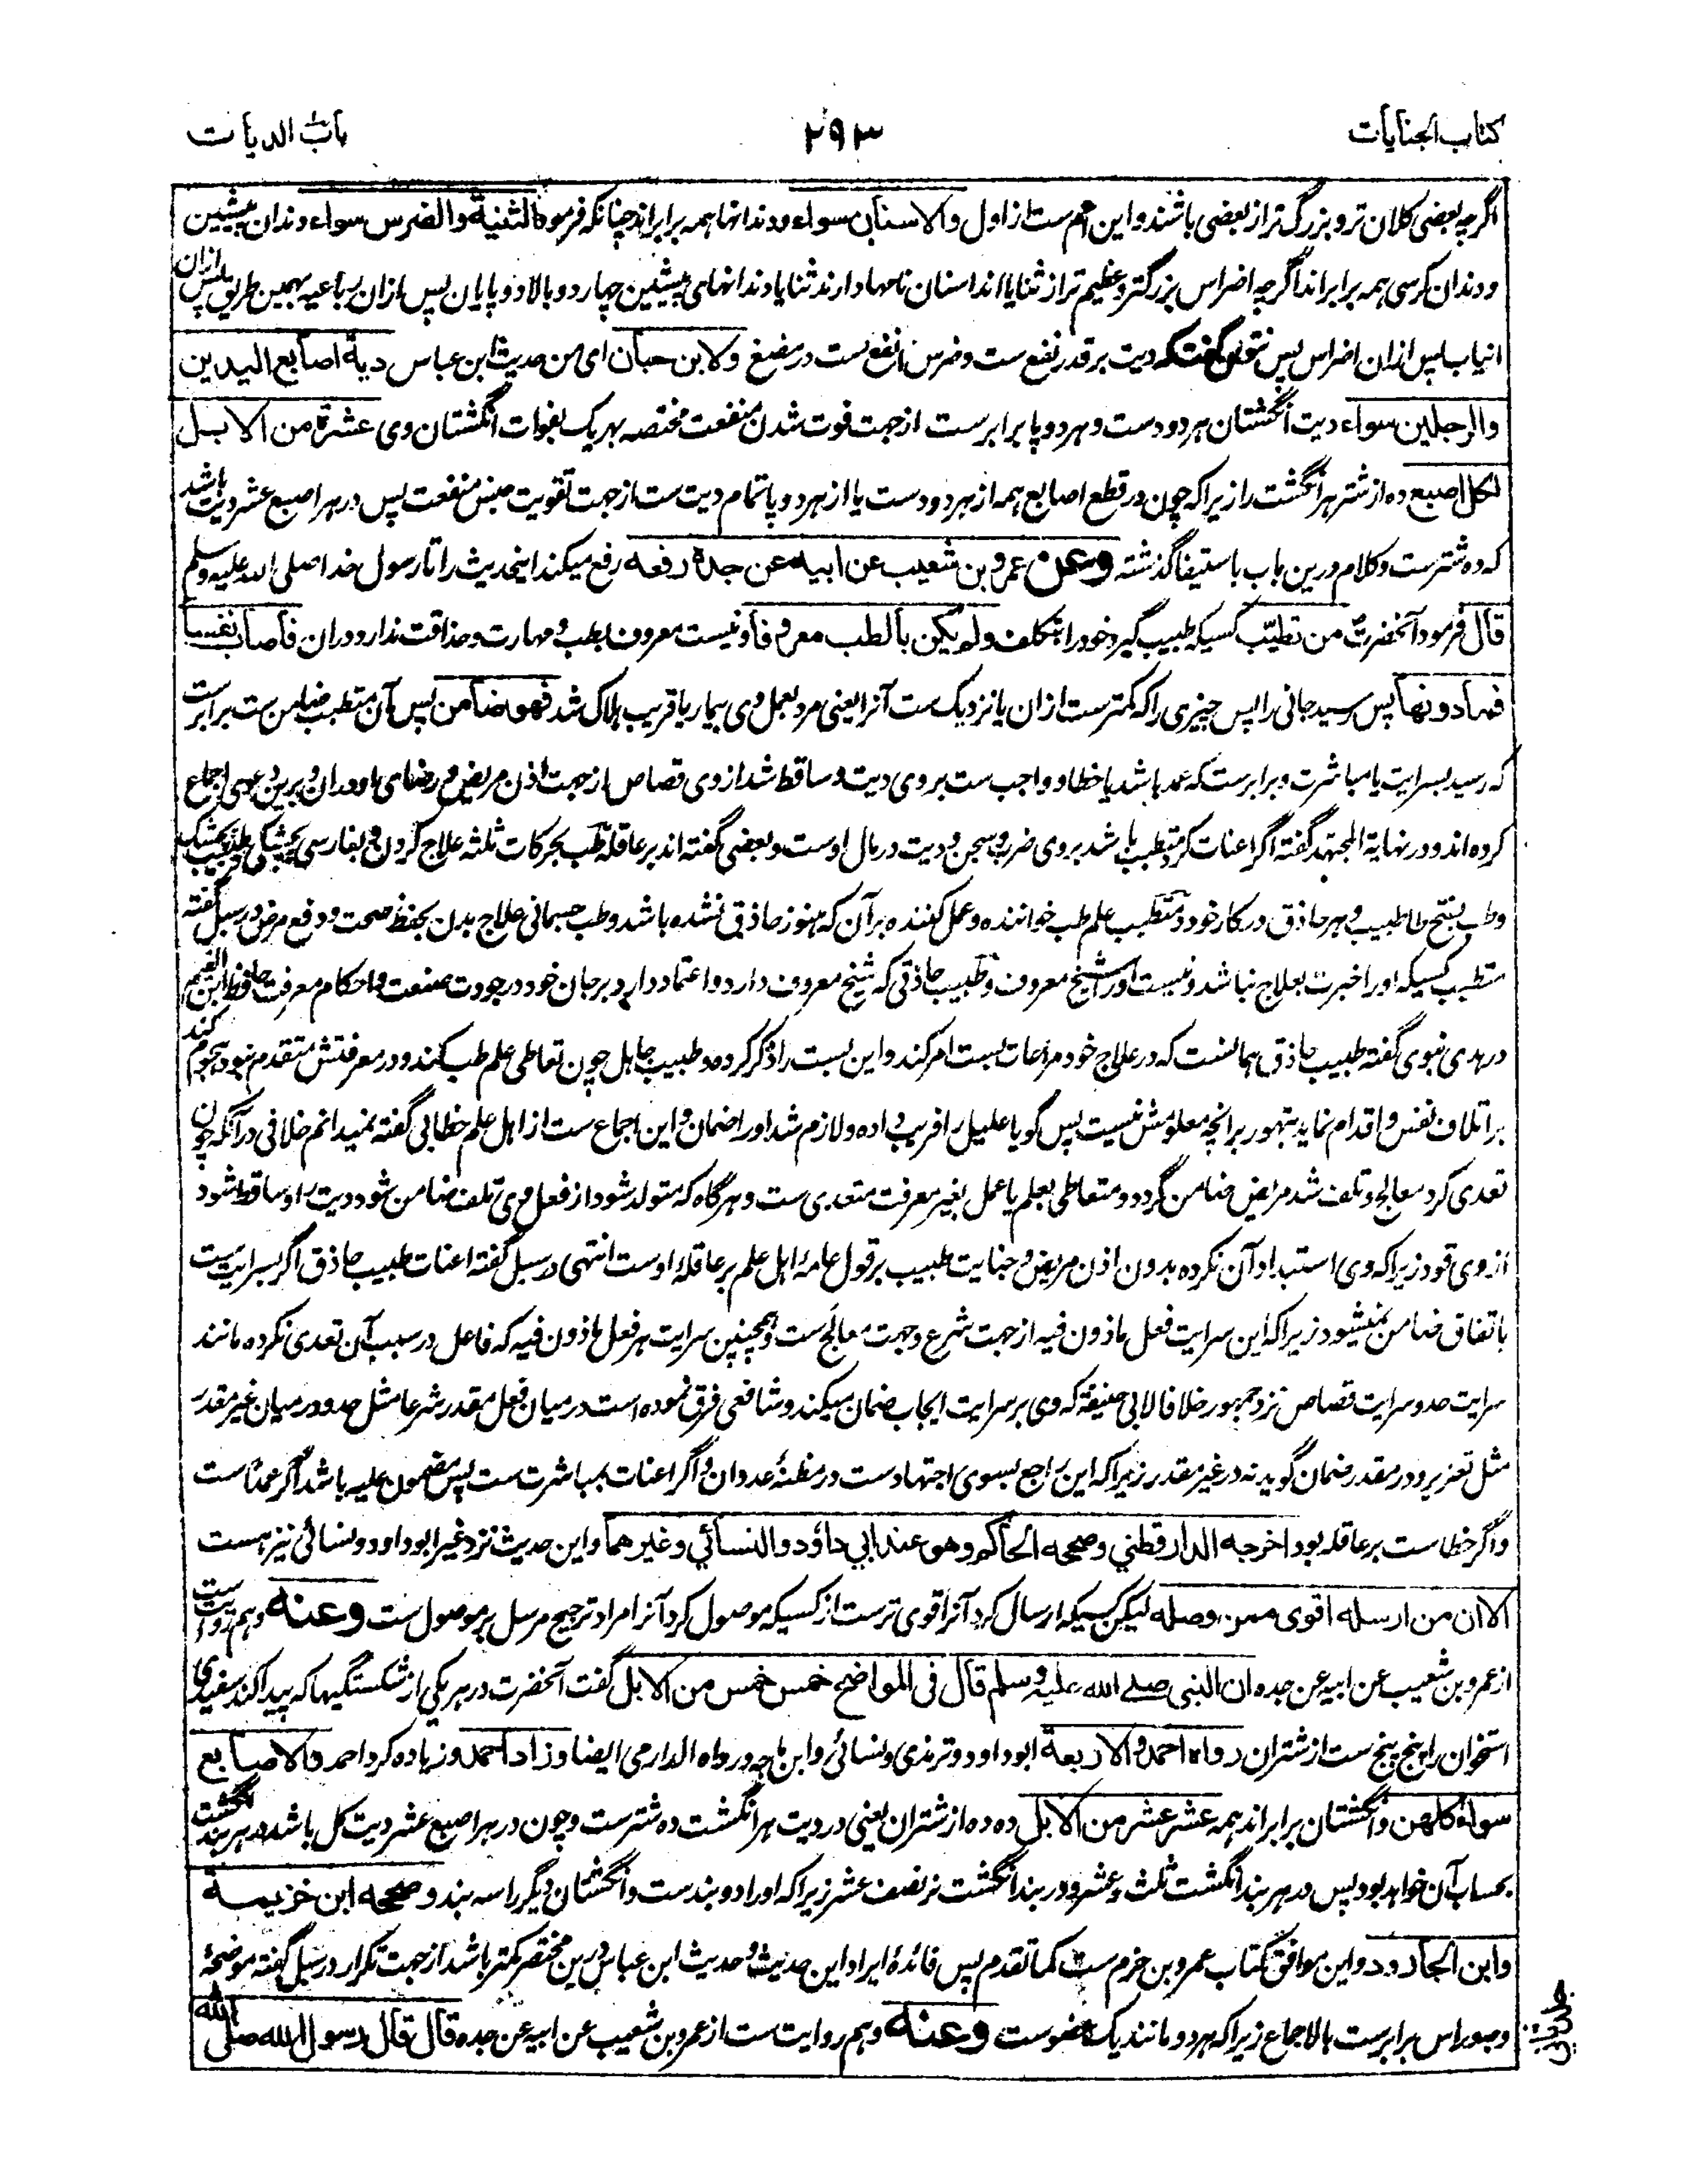 کتاب الجنایات
۲۹۳
باب الدیات
اگرچه بعضی کلان تر و بزرگ تر از بعضی باشند و این هم ست از اول والاسنان سواء و دندانها همه برابراند چنانکه فرمود الثنیة والضرس سواء دندان پیشین
و دندان کرسی همه برابراند اگرچه اضراس بزرگتر و عظیم تر از ثنایا اند اسنان نامها دارند ثنایا دندانهای پیشین چهار دو بالا دو پایان پس ازان رباعیه بهمین طریق پس ازان
انیاب پس ازان اضراس پس نتوان گفت که دیت بر قدر نفع ست و ضرس انفع ست در مضغ ولابن حبان ای من حدیث ابن عباس دیة اصابع الیدین
والرجلین سواء دیت انگشتان هر دو دست و هر دو پا برابرست از جهت فوت شدن منفعت مختصه بهر یک بفوات انگشتان وی عشرة من الابل
لکل اصبع ده از شتر هر انگشت را زیراکه چون در قطع اصابع همه از هر دو دست یا از هر دو پا تمام دیت ست از جهت تفویت جنس منفعت پس در هر اصبع عشر دیت باشد
که ده شترست و کلام درین باب باستیفا گذشته وعن عمرو بن شعیب عن ابیه عن جده رفعه رفع میکند این حدیث را تا رسول خدا صلی الله علیه وسلم
قال فرمود آنحضرت من تطبب کسیکه طبیب گیرد خود را بتکلف ولم یکن بالطب معروفا و نیست معروف بطب و مهارت و حذاقت ندارد دران فأصاب نفسا
فما دونها پس رسید جانی را پس چیزی را که کمترست ازان یا نزدیک ست آنرا یعنی مرد بعمل وی بیمار یا قریب هلاک شد فهو ضامن پس آن متطبب ضامن ست برابرست
که رسید بسرایت یا مباشرت و برابرست که عمد باشد یا خطا و واجب ست بروی دیت و ساقط شد از وی قصاص از جهت اذن مریض و رضای او دران و برین دعوی اجماع
کرده اند و در نهایة المجتهد گفته اگر اعنات کرد متطبب باشد بروی ضرب و سجن و دیت در مال اوست و بعضی گفته اند بر عاقله طب بحرکات ثلثه علاج کردن و بفارسی پچشکی
وطب بفتح طا طبیب و هر حاذق در کار خود و متطبب علم طب خواننده و عمل کننده بر آن که هنوز حاذق نشده باشد و طب جسمانی علاج بدن بحفظ صحت و دفع مرض در سبل گفته
متطبب کسیکه اورا خبرت بعلاج نباشد و نیست اورا شیخ معروف و طبیب حاذق که شیخ معروف دارد و اعتماد دارد بر جان خود در جودت صنعت و احکام معرفت حافظ ابن القیم
در هدی نبوی گفته طبیب حاذق همانست که در علاج خود مراعات بست امر کند و این بست را ذکر کرده و طبیب جاهل چون تعاطی علم طب کند و در معرفتش متقدم نبود هجوم کند
بر اتلاف نفس و اقدام نماید بتهور برانچه معلومش نیست پس گویا علیل را فریب داده و لازم شد اورا ضمان و این اجماع ست از اهل علم خطابی گفته نمیدانم خلافی در آنکه چون
تعدی کرد معالج و تلف شد مریض ضامن گردد و متعاطی بعلم یا عمل بغیر معرفت متعدی ست و هرگاه که متولد شود از فعل وی تلف ضامن شود دیت را و ساقط شود
از وی قود زیراکه وی استبداد آن نکرده بدون اذن مریض و جنایت طبیب بر قول عامه اهل علم بر عاقلهٔ اوست انتهی در سبل گفته اعنات طبیب حاذق اگر بسرایت ست
باتفاق ضامن نمیشود زیراکه این سرایت فعل ماذون فیه از جهت شرع و جهت معالج ست و همچنین سرایت هر فعل ماذون فیه که فاعل در سبب آن تعدی نکرده مانند
سرایت حد و سرایت قصاص نزد جمهور خلافا لابی حنیفة که وی بر سرایت ایجاب ضمان میکند و شافعی فرق نموده است درمیان فعل مقدر شرعا مثل حد و درمیان غیر مقدر
مثل تعزیر و در مقدر ضمان گوید نه در غیر مقدر زیراکه این راجع بسوی اجتهادست در مظنهٔ عدوان و اگر اعنات بمباشرت ست پس مضمون علیه باشد اگر عمداست
و اگر خطاست بر عاقله بود اخرجه الدارقطني وصححه الحاکم وهو عند ابي داؤد والنسائي وغیرهما و این حدیث نزد غیر ابوداود و نسائی نیز هست
الا ان من ارسله اقوی ممن وصله لیکن کسیکه ارسال کرد آنرا قوی ترست از کسیکه موصول کرد آنرا مراد ترجیح مرسل بر موصول ست وعنه و هم روایت ست
از عمرو بن شعیب عن ابیه عن جده ان النبی صلے الله علیه وسلم قال فی المواضح خمس خمس من الابل گفت آنحضرت در هر یکی از شکستگیها که پیدا کند سفیدی
استخوان را پنج پنج ست از شتران رواه احمد والاربعة ابوداود و ترمذی و نسائی و ابن ماجه و رواه الدارمی ایضا وزاد احمد و زیاده کرد احمد والاصابع
سواء کلهن و انگشتان برابراند همه عشر عشر من الابل ده ده از شتران یعنی در دیت هر انگشت ده شترست و چون در هر اصبع عشر دیت کل باشد در هر بند انگشت
بحساب آن خواهد بود پس در هر بند انگشت ثلث عشر و در بند انگشت نر نصف عشر زیراکه اورا دو بندست و انگشتان دیگر را سه بند وصححه ابن خزیمة
وابن الجارود و این موافق کتاب عمرو بن حزم ست کما تقدم پس فائدهٔ ایراد این حدیث و حدیث ابن عباس درین مختصر کمتر باشد از جهت تکرار در سبل گفته موضحهٔ
وجه و راس برابرست بالاجماع زیراکه هر دو مانند یک عضوست وعنه و هم روایت ست از عمرو بن شعیب عن ابیه عن جده قال قال رسول الله صلی الله